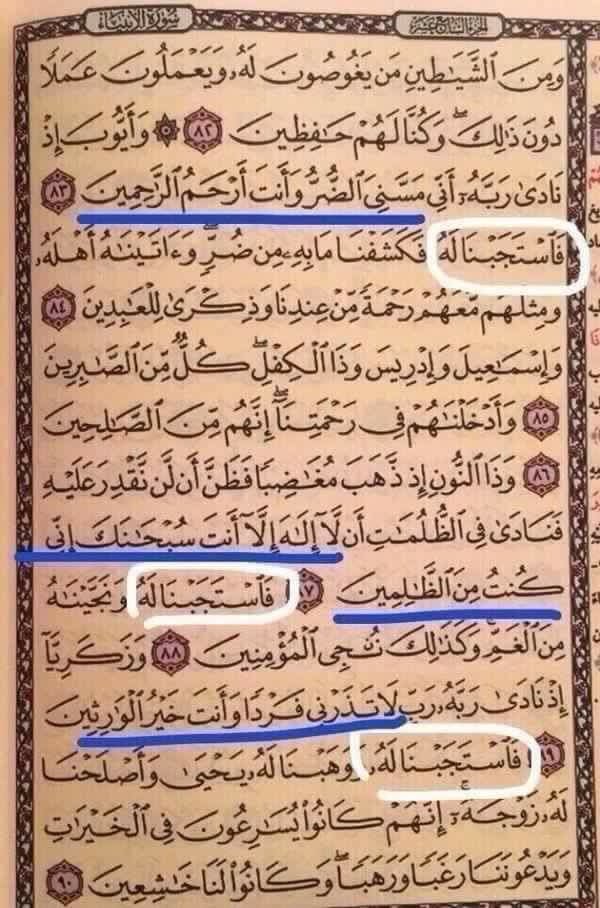 سُورَةُ الأَنبِيَاءِ
الجُزءُ السَّابِعَ عَشَرَ
وَمِنَ ٱلشَّيَٰطِينِ مَن يَغُوصُونَ لَهُۥ وَيَعْمَلُونَ عَمَلًا
دُونَ ذَٰلِكَ ۖ وَكُنَّا لَهُمْ حَٰفِظِينَ ٨٢ ۞ وَأَيُّوبَ إِذْ
نَادَىٰ رَبَّهُۥٓ أَنِّى مَسَّنِىَ ٱلضُّرُّ وَأَنتَ أَرْحَمُ ٱلرَّٰحِمِينَ ٨٣
فَٱسْتَجَبْنَا لَهُۥ فَكَشَفْنَا مَا بِهِۦ مِن ضُرٍّ ۖ وَءَاتَيْنَٰهُ أَهْلَهُۥ
وَمِثْلَهُم مَّعَهُمْ رَحْمَةً مِّنْ عِندِنَا وَذِكْرَىٰ لِلْعَٰبِدِينَ ٨٤
وَإِسْمَٰعِيلَ وَإِدْرِيسَ وَذَا ٱلْكِفْلِ ۖ كُلٌّ مِّنَ ٱلصَّٰبِرِينَ
٨٥ وَأَدْخَلْنَٰهُمْ فِى رَحْمَتِنَآ ۖ إِنَّهُم مِّنَ ٱلصَّٰلِحِينَ
٨٦ وَذَا ٱلنُّونِ إِذ ذَّهَبَ مُغَٰضِبًا فَظَنَّ أَن لَّن نَّقْدِرَ عَلَيْهِ
فَنَادَىٰ فِى ٱلظُّلُمَٰتِ أَن لَّآ إِلَٰهَ إِلَّآ أَنتَ سُبْحَٰنَكَ إِنِّى
كُنتُ مِنَ ٱلظَّٰلِمِينَ ٨٧ فَٱسْتَجَبْنَا لَهُۥ وَنَجَّيْنَٰهُ
مِنَ ٱلْغَمِّ ۚ وَكَذَٰلِكَ نُۨجِى ٱلْمُؤْمِنِينَ ٨٨ وَزَكَرِيَّآ
إِذْ نَادَىٰ رَبَّهُۥ رَبِّ لَا تَذَرْنِى فَرْدًا وَأَنتَ خَيْرُ ٱلْوَٰرِثِينَ
٨٩ فَٱسْتَجَبْنَا لَهُۥ وَوَهَبْنَا لَهُۥ يَحْيَىٰ وَأَصْلَحْنَا
لَهُۥ زَوْجَهُۥٓ ۚ إِنَّهُمْ كَانُوا۟ يُسَٰرِعُونَ فِى ٱلْخَيْرَٰتِ
وَيَدْعُونَنَا رَغَبًا وَرَهَبًا ۖ وَكَانُوا۟ لَنَا خَٰشِعِينَ ٩٠